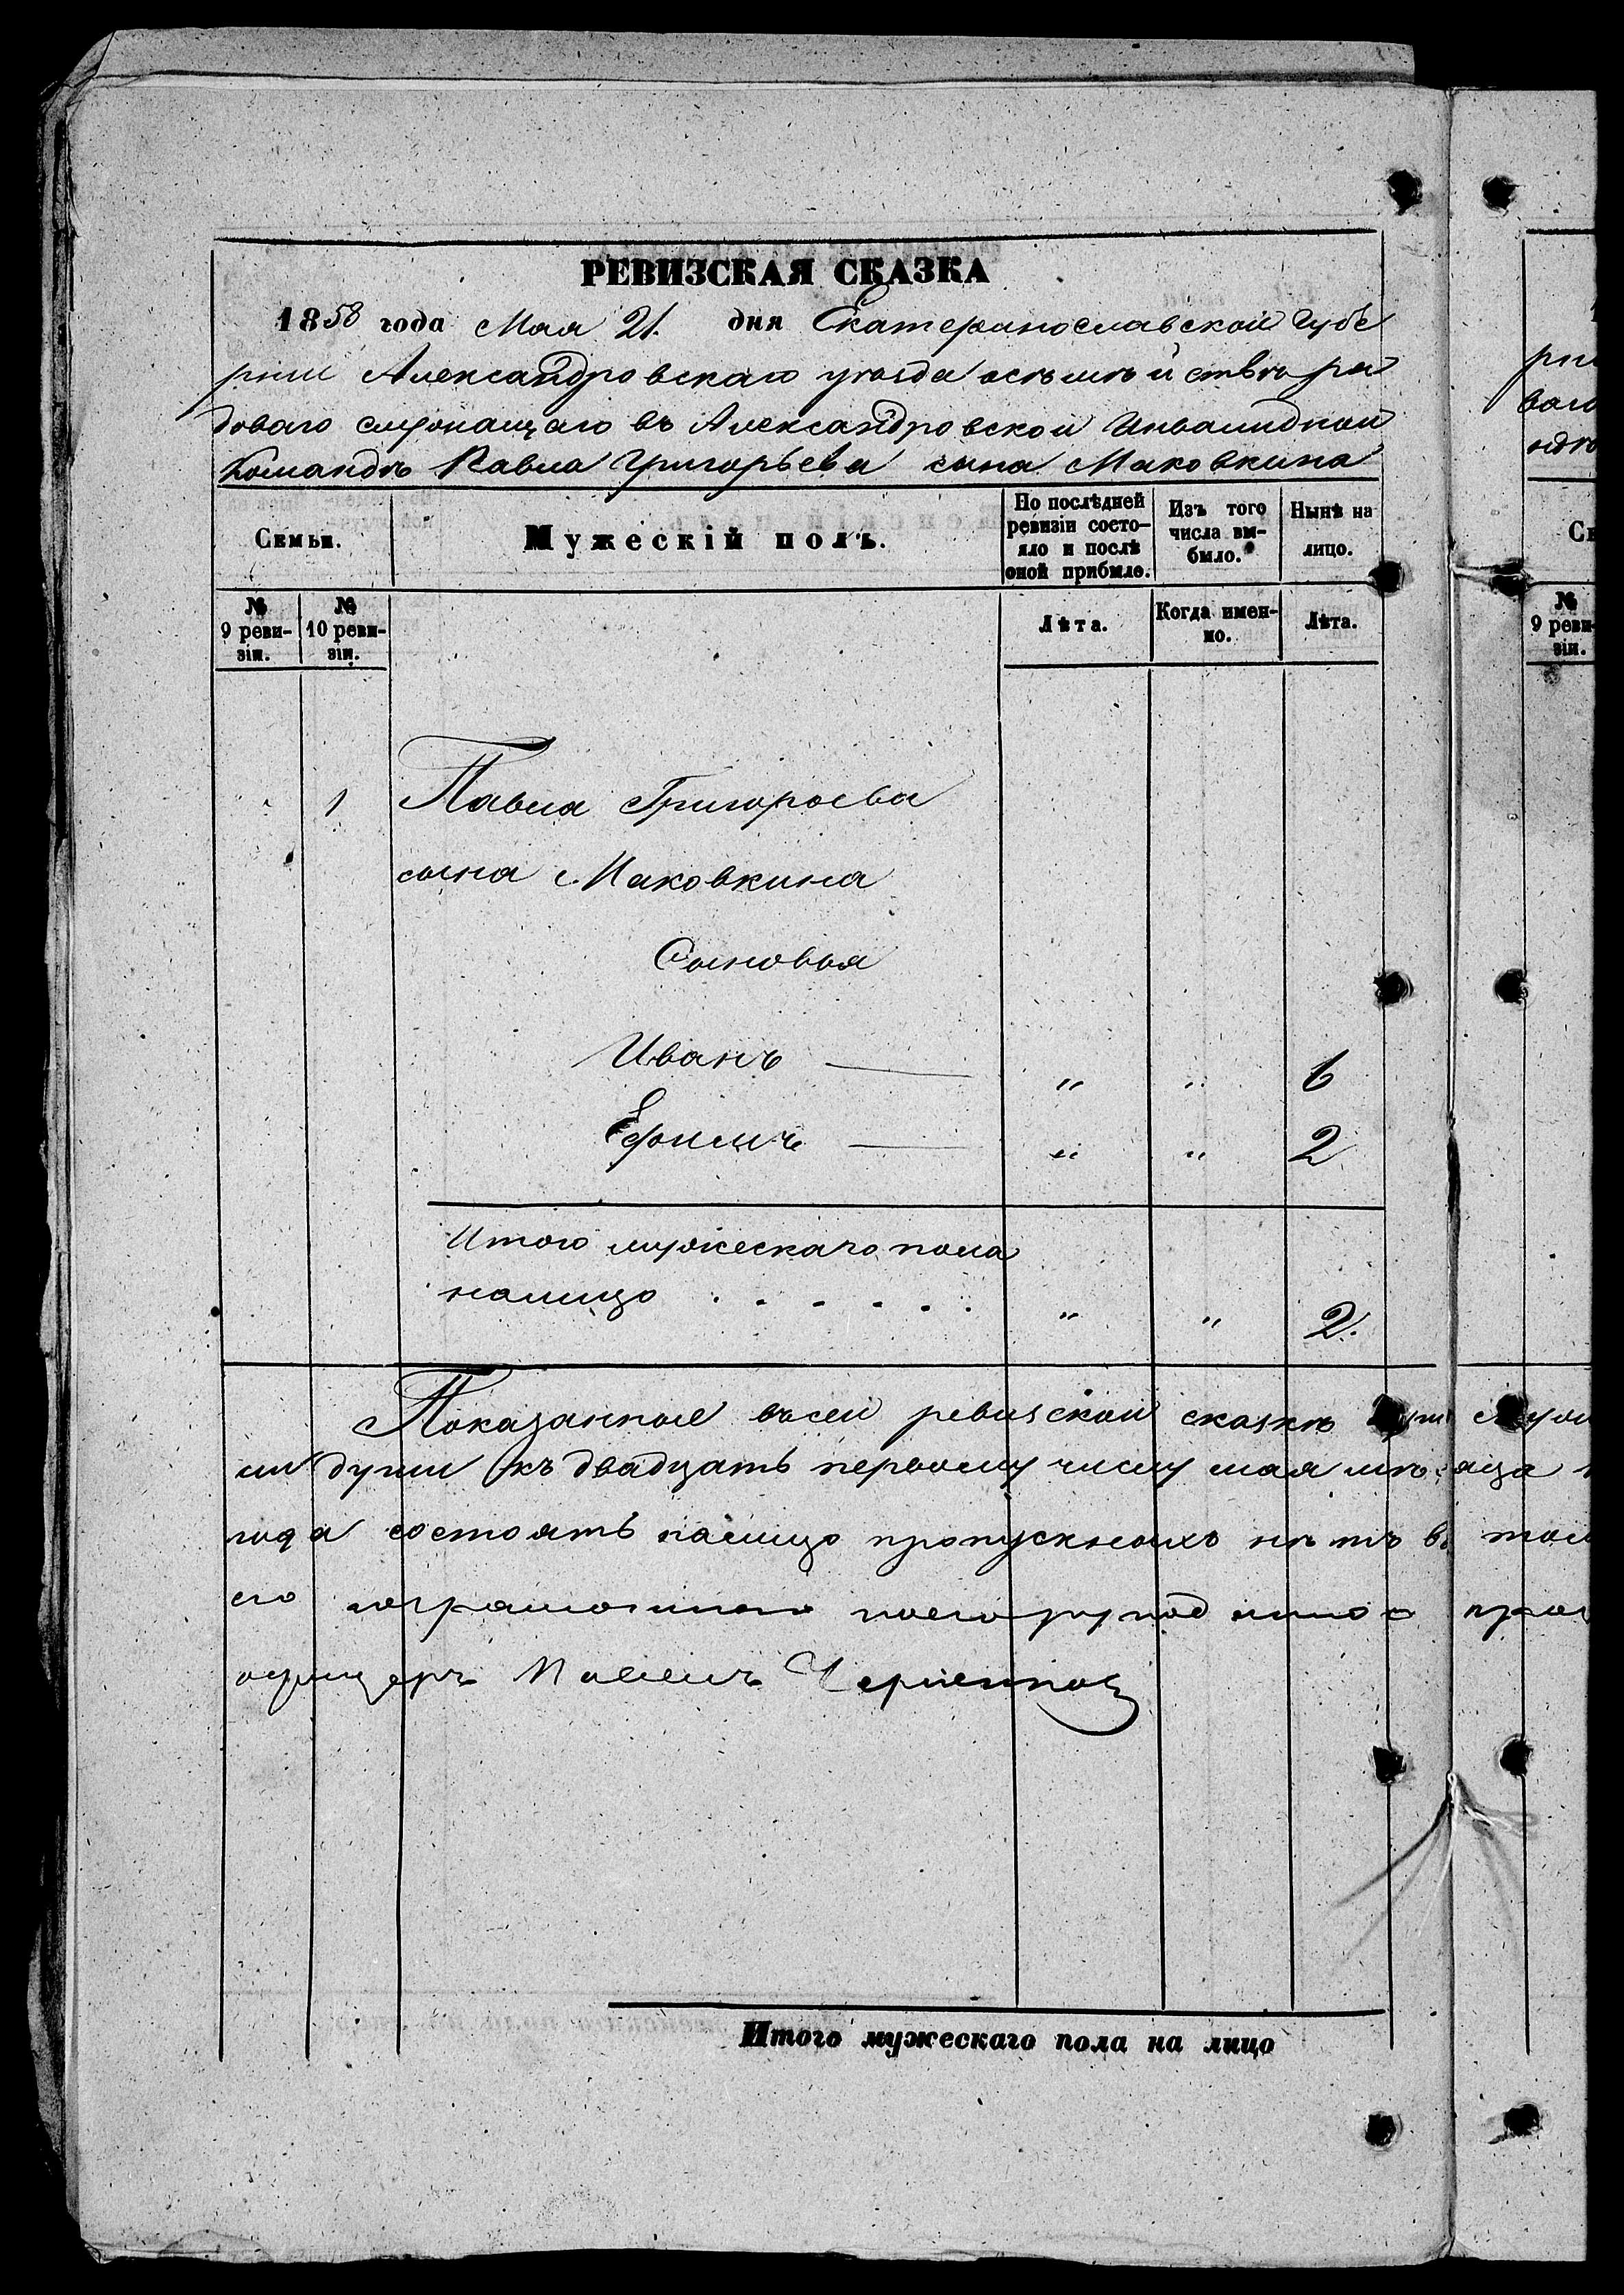 РЕВИЗСКАЯ СКАЗКА
1858 года Мая 21. дня Екатеринославской Губе
рніи Александровскаго уѣзда о семѣйствѣ ря
доваго служащаго въ Александровской Инвалидной
Командѣ Павла Григорьева сына Маковкина
Семьи.
Мужескій полъ.
По послѣдней ревизіи состо-
яло и послѣ
оной прибыло.
Изъ того
числа вы-
было.
Нынѣ на
лицо.
№ 9 реви-
зіи.
№ 10 реви-
зіи.
Лѣта.
Когда имен-
но.
Лѣта.
1 Павла Григорьева
сына Маковкина
Сыновья
Иванъ — „ „ 6
Ефимъ — „ „ 2
Итого мужескаго пола
налицо . . . . . . „ „ 2.
Показанные въ сей ревизской сказкѣ
ми души къ двадцать первому числу мая мѣсяца
года состоятъ налицо пропускныхъ нѣтъ въ том
его
офицеръ
Итого мужескаго пола на лицо
рні
ваго
ндѣ
Се
№
9 реви-
зіи.